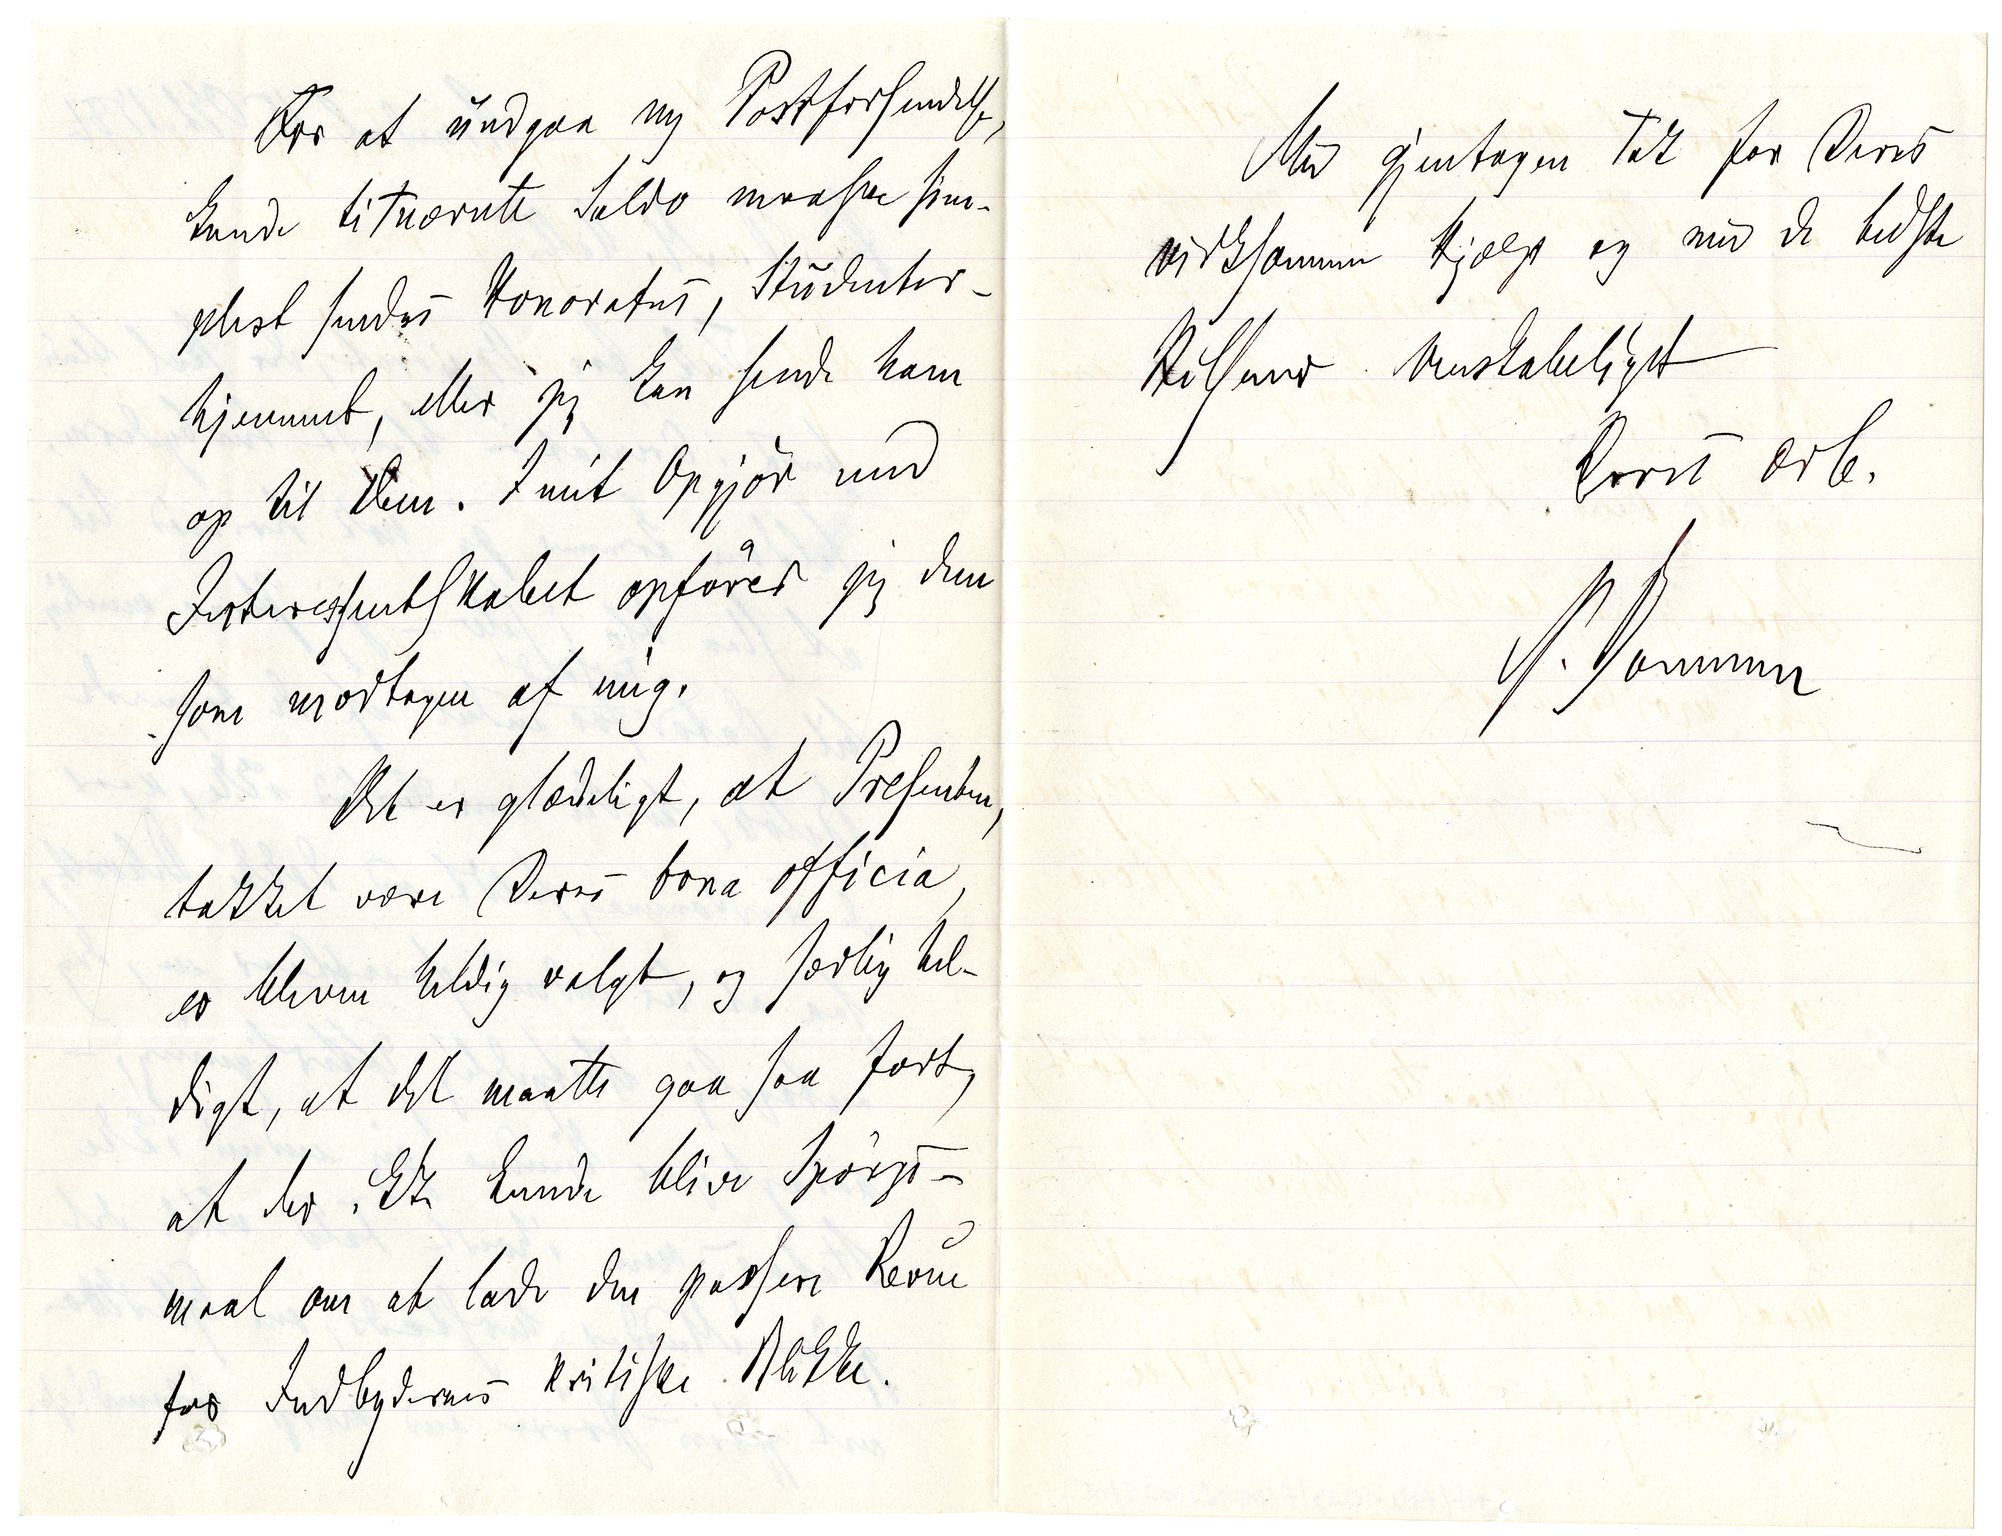 For at undgaa ny Postforsendelse,
kunde titnævnte Saldo maaske sim-
plest sendes Honoratus, Studenter-
hjemmet, eller jeg kan sende ham
op til Dem. I mit Opgjör med
Interessentskabet opförer jeg den
som modtagen af mig.
Det er glædeligt, at Presenten,
takket være Deres bona officia,
er bleven heldig valgt, og særlig hel-
digt, at det maatte gaa saa fort,
at der ikke kunde blive Spörgs-
maal om at lade den passere Revue
for Indbydernes kritiske Blikke.
Med gjentagen Tak for Deres
virksomme Hjælp og med de bedste
Hilsener venskabeligst
Deres ærb.